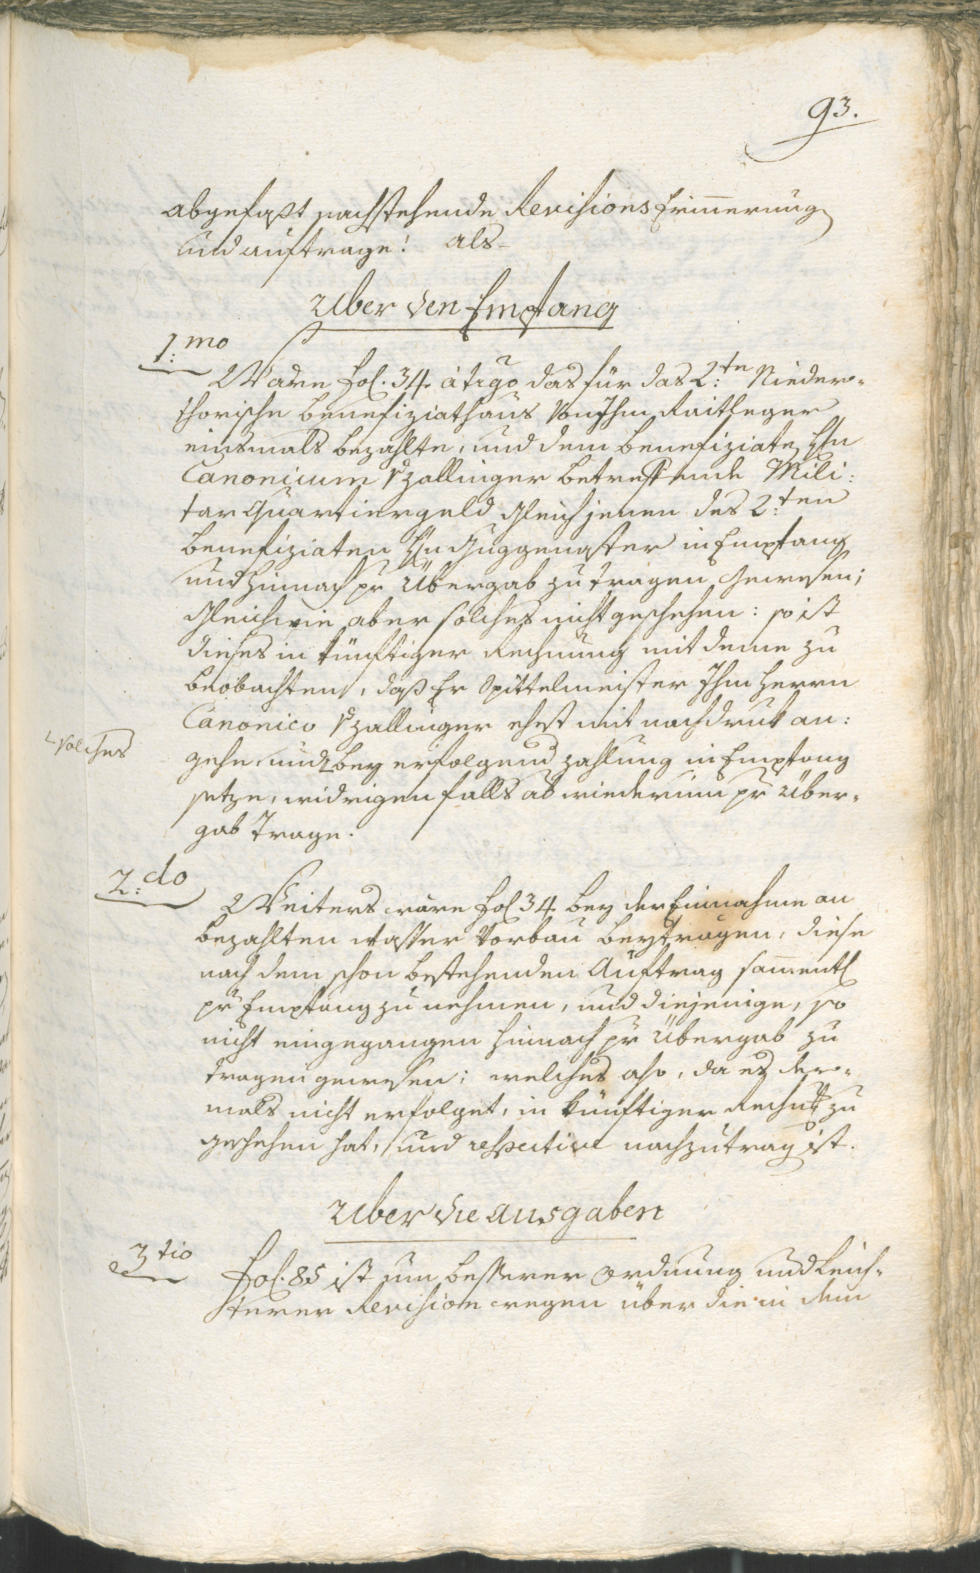 93.
abgefaßt nachstehende Revisions Erinnerung
und auftrage! als
Uber den Empfang
1:mo
Wäre fol. 34 à tergo das für das 2:te Nieder-
thorische Benefiziathaus von Ihm Raitleger
einsmals bezahlte, und dem Benefiziaten Hn
Canonicum v Zallinger betreffende Mili:
tar Quartiergeld gleich jenen des 2:ten
Benefiziaten Hn Guggengster in Empfang
und hinnach pr Übergab zu tragen gewesen;
gleichwie aber solches nicht geschehen: so ist
dieses in künftiger Rechnung mit deme zu
beobachten, daß Er Spittelmeister Ihm Herrn
Canonico v Zallinger ehest mit nachdruk an:
solches
gehe, und bey erfolgend zahlung in Empfang
setze, widrigen falls ab wiederum pr Über-
gab Trage.
2:do
Weiters wäre fol 34 bey der Einnahme an
bezahlten wasser Vorbau beyträgen, diese
nach dem schon bestehenden Auftrag samentl
pr Empfang zu nehmen, und diejenige, so
nicht eingegangen hinnach pr Übergab zu
tragen gewesen; welches also, da es der-
mals nicht erfolget, in künftiger Rechnung zu
geschehen hat, und respective nachzutragen ist.
Uber die ausgaben
3tio
Fol. 85 ist um besserer Ordnung und Leich-
terer Revision wegen über die in dem